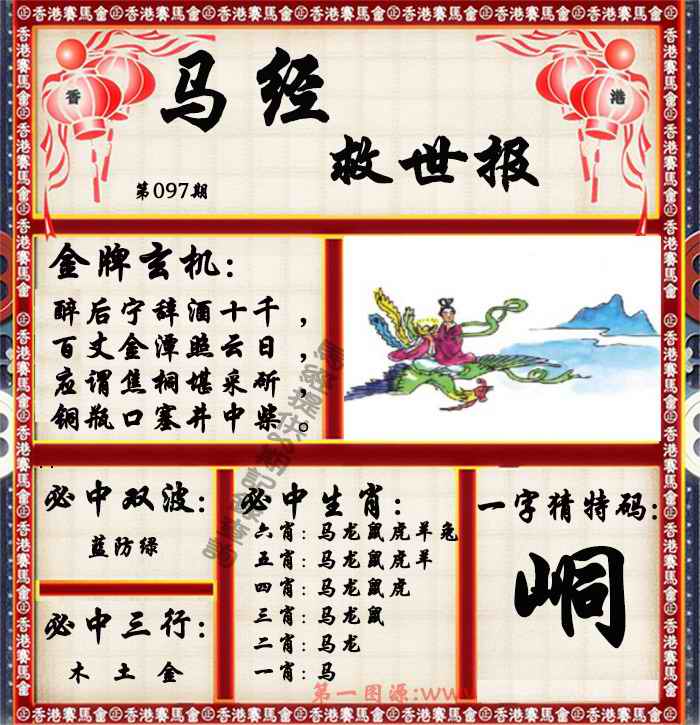 香港賽馬會
香 港
马经
救世报
第097期
金牌玄机:
醉后宁辞酒十千，
百丈金潭照云日，
应谓焦桐堪采斫，
铜瓶口塞井中柴。
必中双波:
蓝防绿
必中三行:
木 土 金
必中生肖:
六肖: 马龙鼠虎羊兔
五肖: 马龙鼠虎羊
四肖: 马龙鼠虎
三肖: 马龙鼠
二肖: 马龙
一肖: 马
一字猜特码:
峒
第一图源:ww